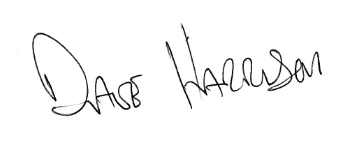 Dave Harrison